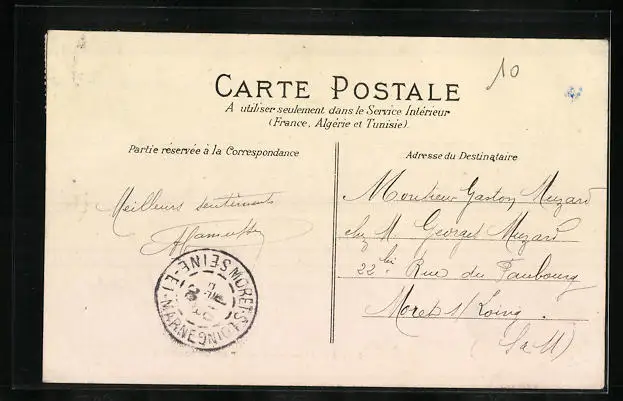 10
CARTE POSTALE
A utiliser seulement dans le Service Intérieur
(France, Algérie et Tunisie).
Partie réservée à la Correspondance
Adresse du Destinataire
Meilleurs sentiments
Monsieur Gaston Muzard
chez M. Georges Muzard
22 bis Rue du Faubourg
Moret s/ Loing.
(S. & M)
MORET-S-LOING
SEINE-ET-MARNE